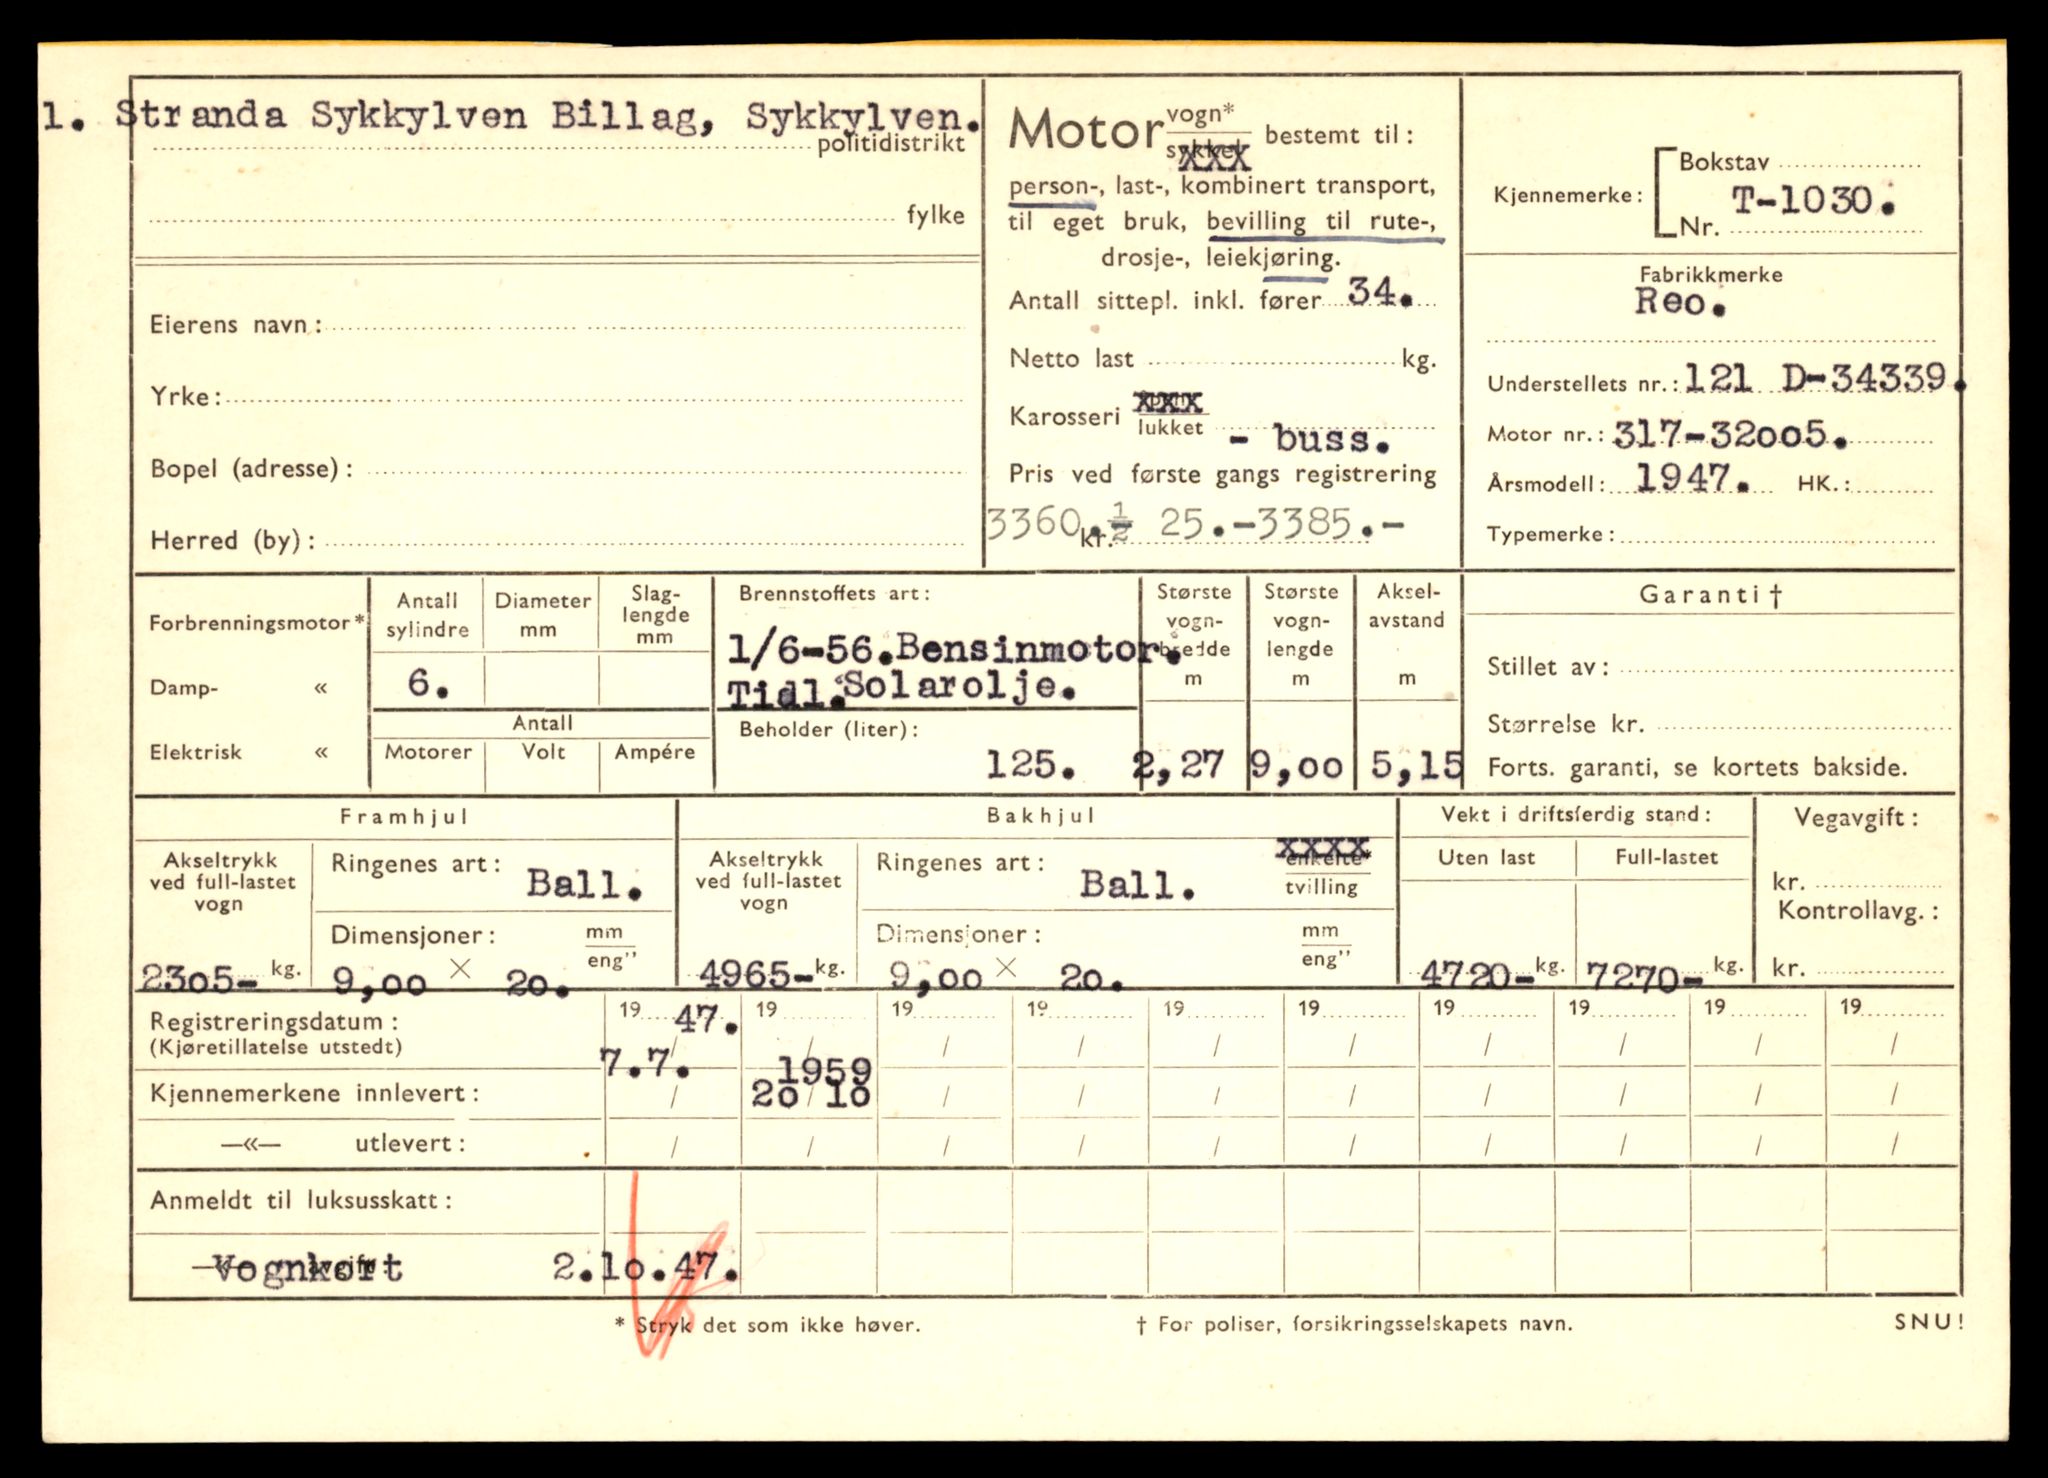 1. Stranda Sykkylven Billag, Sykkylven.
politidistrikt
fylke
Eierens navn:
Yrke:
Bopel (adresse):
Herred (by):
Motor vogn*
sykkel xxx bestemt til:
person-, last-, kombinert transport,
til eget bruk, bevilling til rute-,
drosje-, leiekjøring.
Antall sittepl. inkl. fører 34.
Netto last kg.
Karosseri xxx
lukket - buss.
Pris ved første gangs registrering
3360.½ 25.-3385.-
kr.
Kjennemerke: Bokstav
T-1030.
Nr.
Fabrikkmerke
Reo.
Understellets nr.: 121 D-34339.
Motor nr.: 317-32005.
Årsmodell: 1947. HK.:
Typemerke:
Forbrenningsmotor*
Damp- «
Elektrisk «
Antall sylindre
Diameter mm
Slag-lengde mm
6.
Antall
Motorer Volt Ampére
Brennstoffets art:
1/6-56. Bensinmotor.
Tidl. Solarolje.
Beholder (liter):
125.
Største vogn-bredde m
2,27
Største vogn-lengde m
9,00
Aksel-avstand m
5,15
Garanti †
Stillet av:
Størrelse kr.
Forts. garanti, se kortets bakside.
Framhjul
Akseltrykk ved full-lastet vogn
2305- kg.
Ringenes art: Ball.
Dimensjoner: mm
eng"
9,00 × 20.
Bakhjul
Akseltrykk ved full-lastet vogn
4965- kg.
Ringenes art: Ball.
xxxx
enkelte*
tvilling
Dimensjoner: mm
eng"
9,00 × 20.
Vekt i driftsferdig stand:
Uten last Full-lastet
4720- kg. 7270- kg.
Vegavgift:
kr.
Kontrollavg.:
kr.
Registreringsdatum: 19 47. 19 19 19 19 19 19 19 19 19
(Kjøretillatelse utstedt) 7.7. / / / / / / / / / /
1959
Kjennemerkene innlevert: / 20/10 / / / / / / / /
—«— utlevert: / / / / / / / / / /
Anmeldt til luksusskatt:
—«— avgift: Vognkort 2.10.47.
* Stryk det som ikke høver.
† For poliser, forsikringsselskapets navn.
SNU!